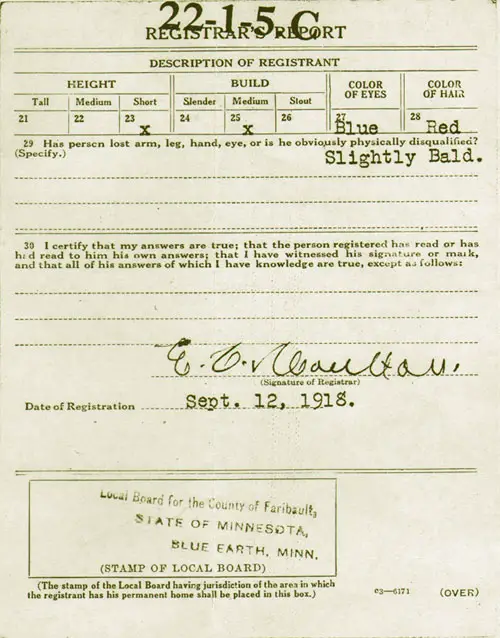 22-1-5 C
REGISTRAR'S REPORT
DESCRIPTION OF REGISTRANT
HEIGHT BUILD COLOR OF EYES COLOR OF HAIR
Tall Medium Short Slender Medium Stout
21 22 23 24 25 26 27 28
x x Blue Red
29 Has person lost arm, leg, hand, eye, or is he obviously physically disqualified?
(Specify.) Slightly Bald.
30 I certify that my answers are true; that the person registered has read or has
had read to him his own answers; that I have witnessed his signature or mark,
and that all of his answers of which I have knowledge are true, except as follows:
E. C. Moulton.
(Signature of Registrar)
Date of Registration Sept. 12, 1918.
Local Board for the County of Faribault,
STATE OF MINNESOTA,
BLUE EARTH, MINN.
(STAMP OF LOCAL BOARD)
(The stamp of the Local Board having jurisdiction of the area in which
the registrant has his permanent home shall be placed in this box.)
03—6171 (OVER)